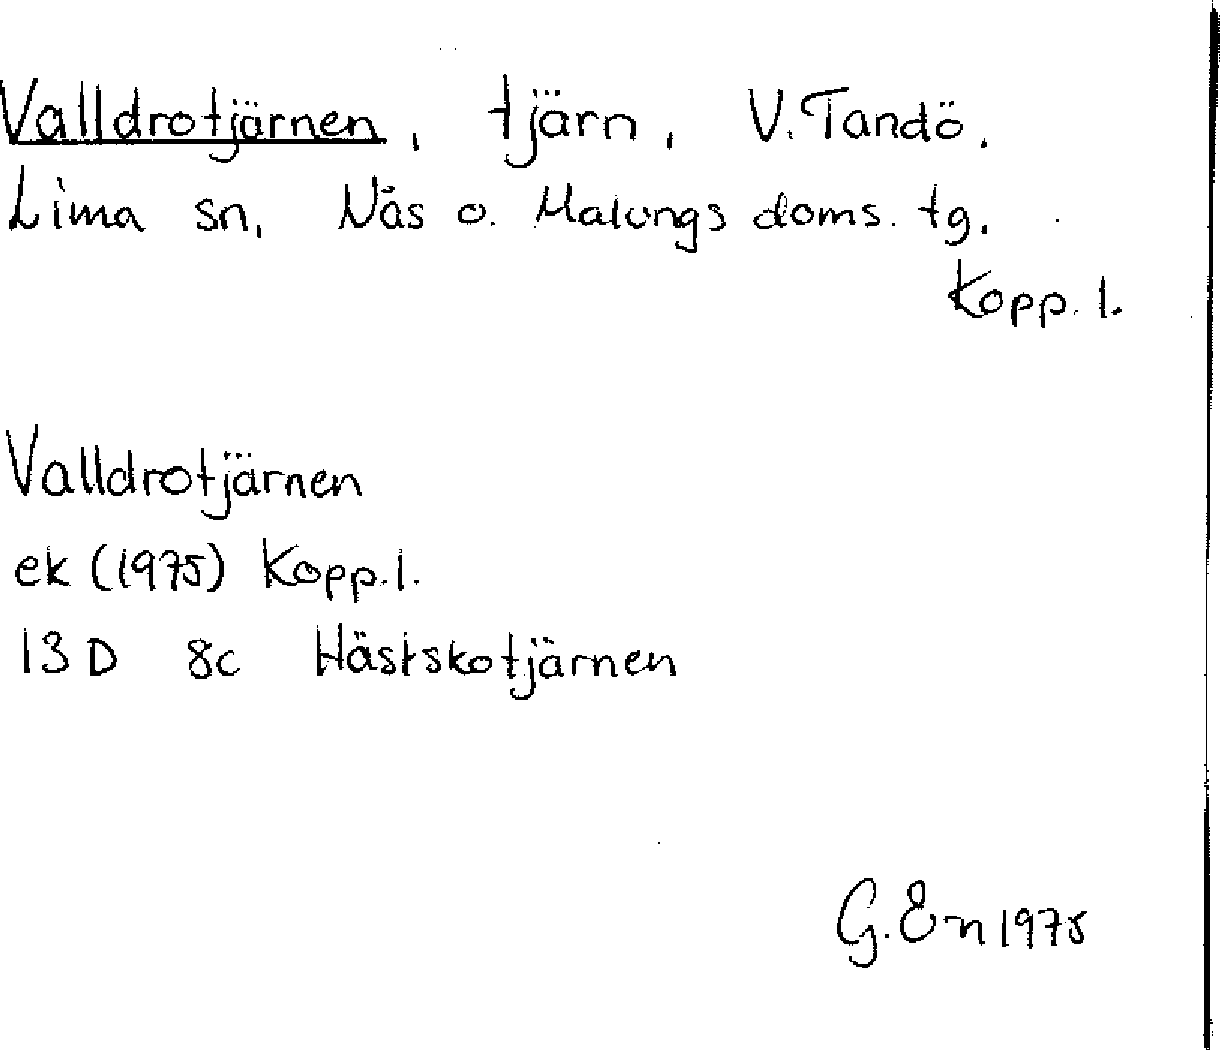 Valldrotjärnen, tjärn, V. Tandö.
Lima sn, Nås o. Malungs doms. tg.
Kopp. l.
Valldrotjärnen
ek (1975) Kopp. l.
13 D 8c Hästskotjärnen
G. En 1975